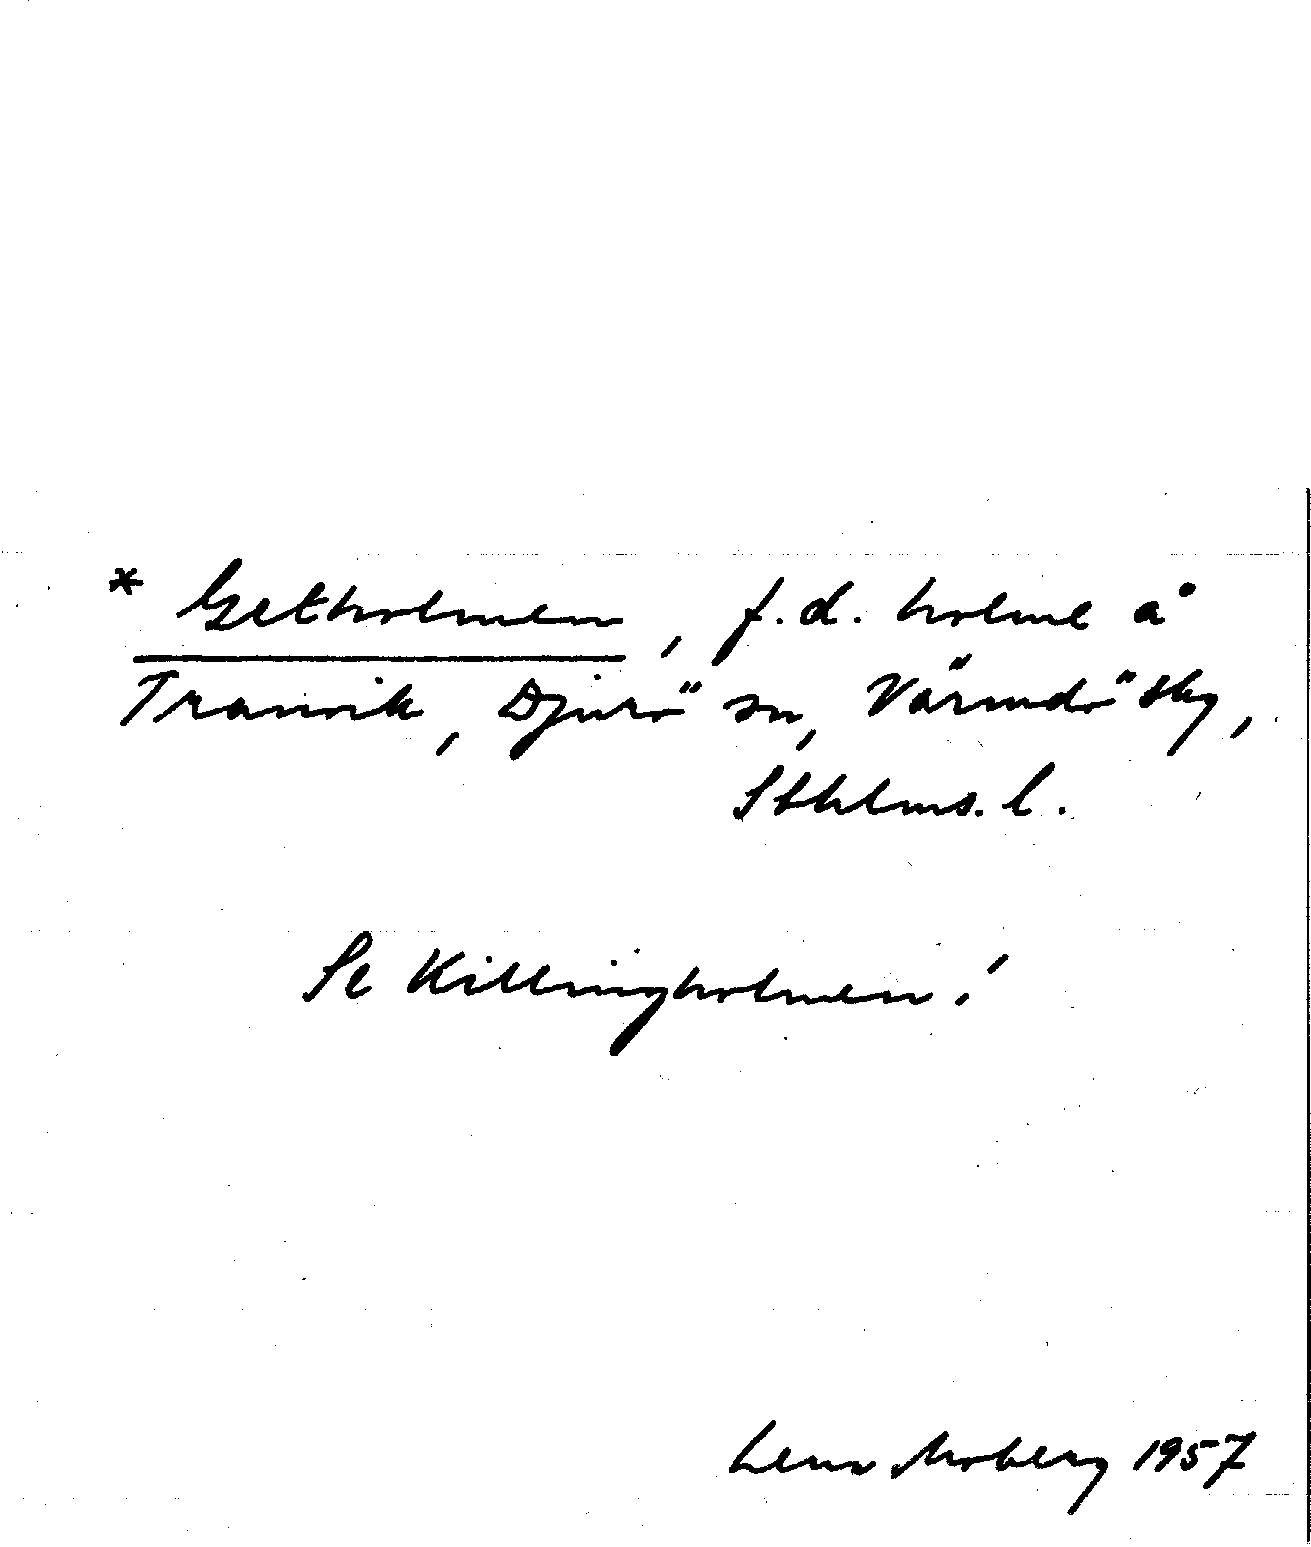 * Getholmen, f.d. holme å
Tranvik, Djurö sn, Värmdö skg,
Sthlms. l.
Se Killingholmen!
Lena Moberg 1957